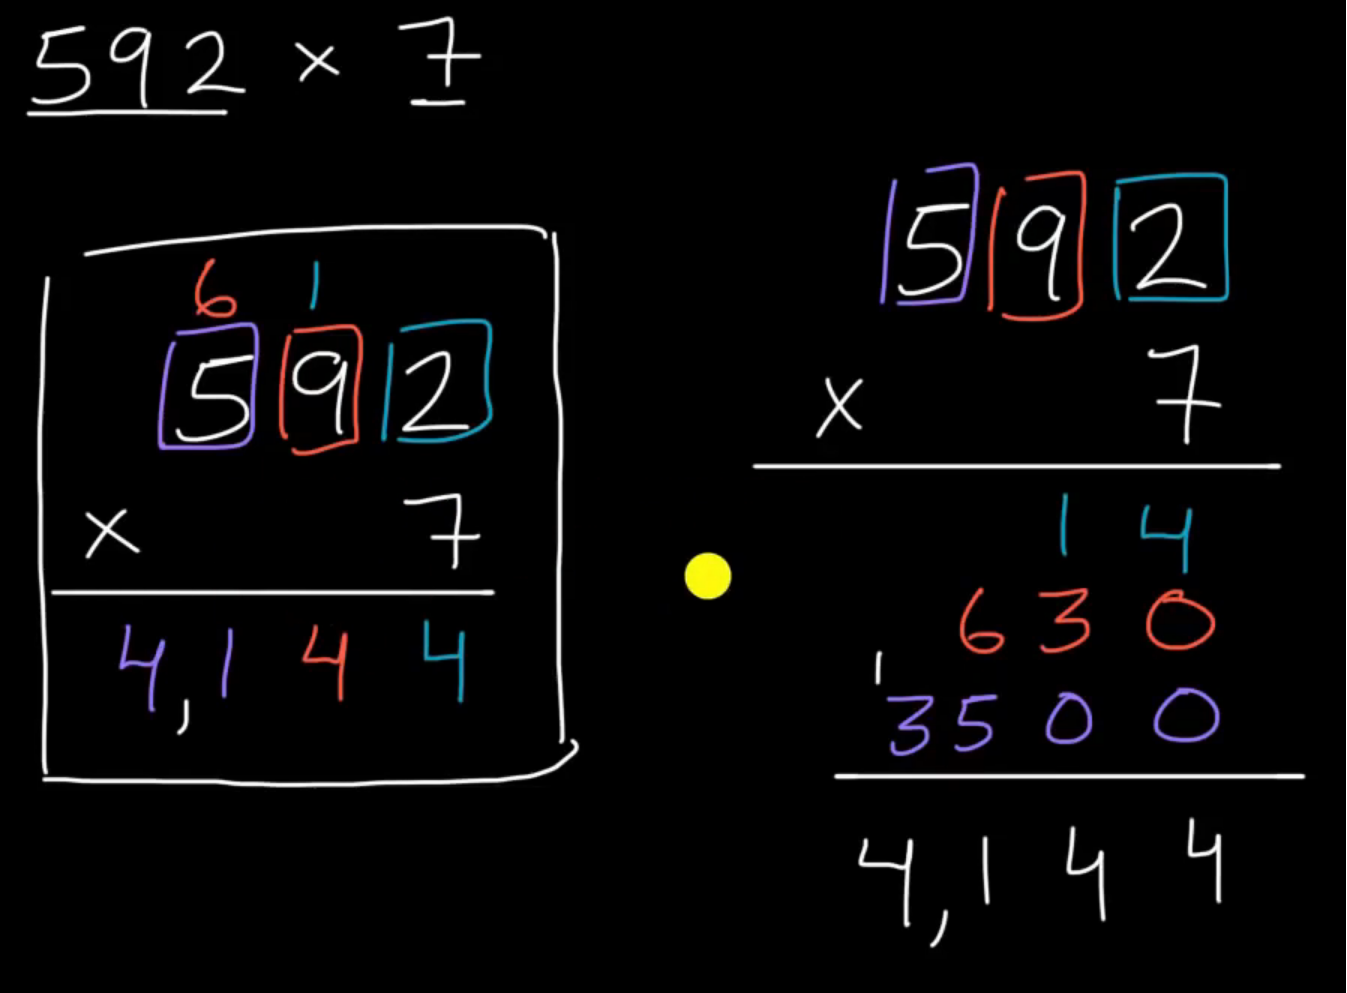 592 × 7
6 1
592
× 7
4,144
592
× 7
14
630
1
3500
4,144